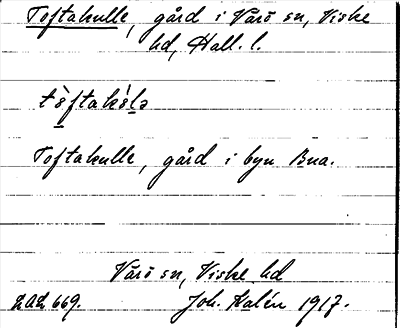 Toftakulle, gård i Värö sn, Viske
hd, Hall. l.
tòftakúlə
Toftakulle, gård i byn Bua.
Värö sn, Viske hd
LAL 669. Joh. Kalén 1917.